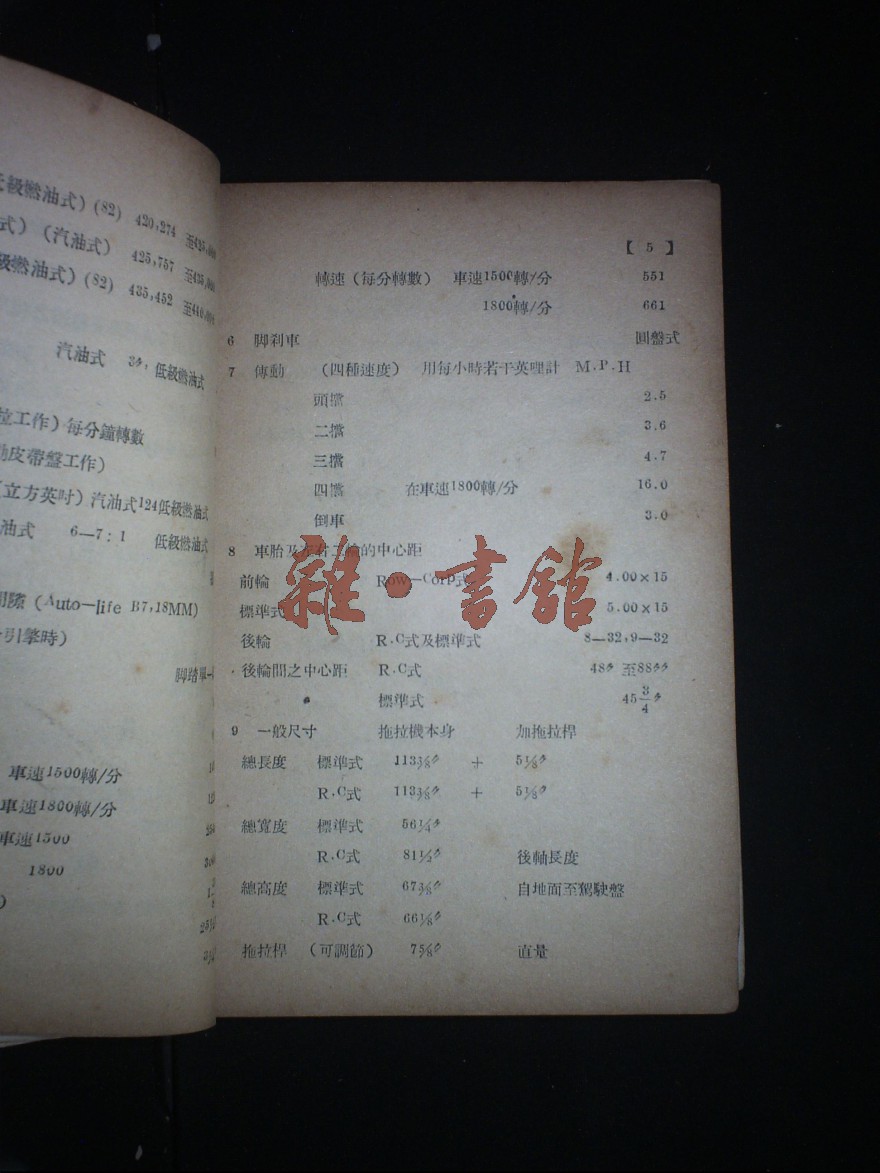 級燃油式) (82) 420,274
式) (汽油式) 425,757
級燃油式) (82) 435,452
汽油式 低級燃油式
拉工作) 每分鐘轉數
皮帶盤工作)
(立方英吋) 汽油式124低級燃油式
油式 6—7:1 低級燃油式
隙 (Auto—life B7,18MM)
引擎時)
車速1500轉/分
車速1800轉/分
車速1500
1800
【 5 】
轉速 (每分轉數) 車速1500轉/分 551
1800轉/分 661
6 脚刹車 圓盤式
7 傳動 (四種速度) 用每小時若干英哩計 M.P.H
頭擋 2.5
二擋 3.6
三擋 4.7
四擋 在車速1800轉/分 16.0
倒車 3.0
8 車胎及左右二輪的中心距
前輪 Row—Corp式 4.00×15
標準式 5.00×15
雜·書館
後輪 R.C式及標準式 8—32,9—32
後輪間之中心距 R.C式 48〃 至88〃
標準式 45 3/4〃
9 一般尺寸 拖拉機本身 加拖拉桿
總長度 標準式 113⅜〃 + 5⅛〃
R.C式 113⅜〃 + 5⅛〃
總寬度 標準式 56¼〃
R.C式 81½〃 後軸長度
總高度 標準式 67⅜〃 自地面至駕駛盤
R.C式 66⅛〃
拖拉桿 (可調節) 直量